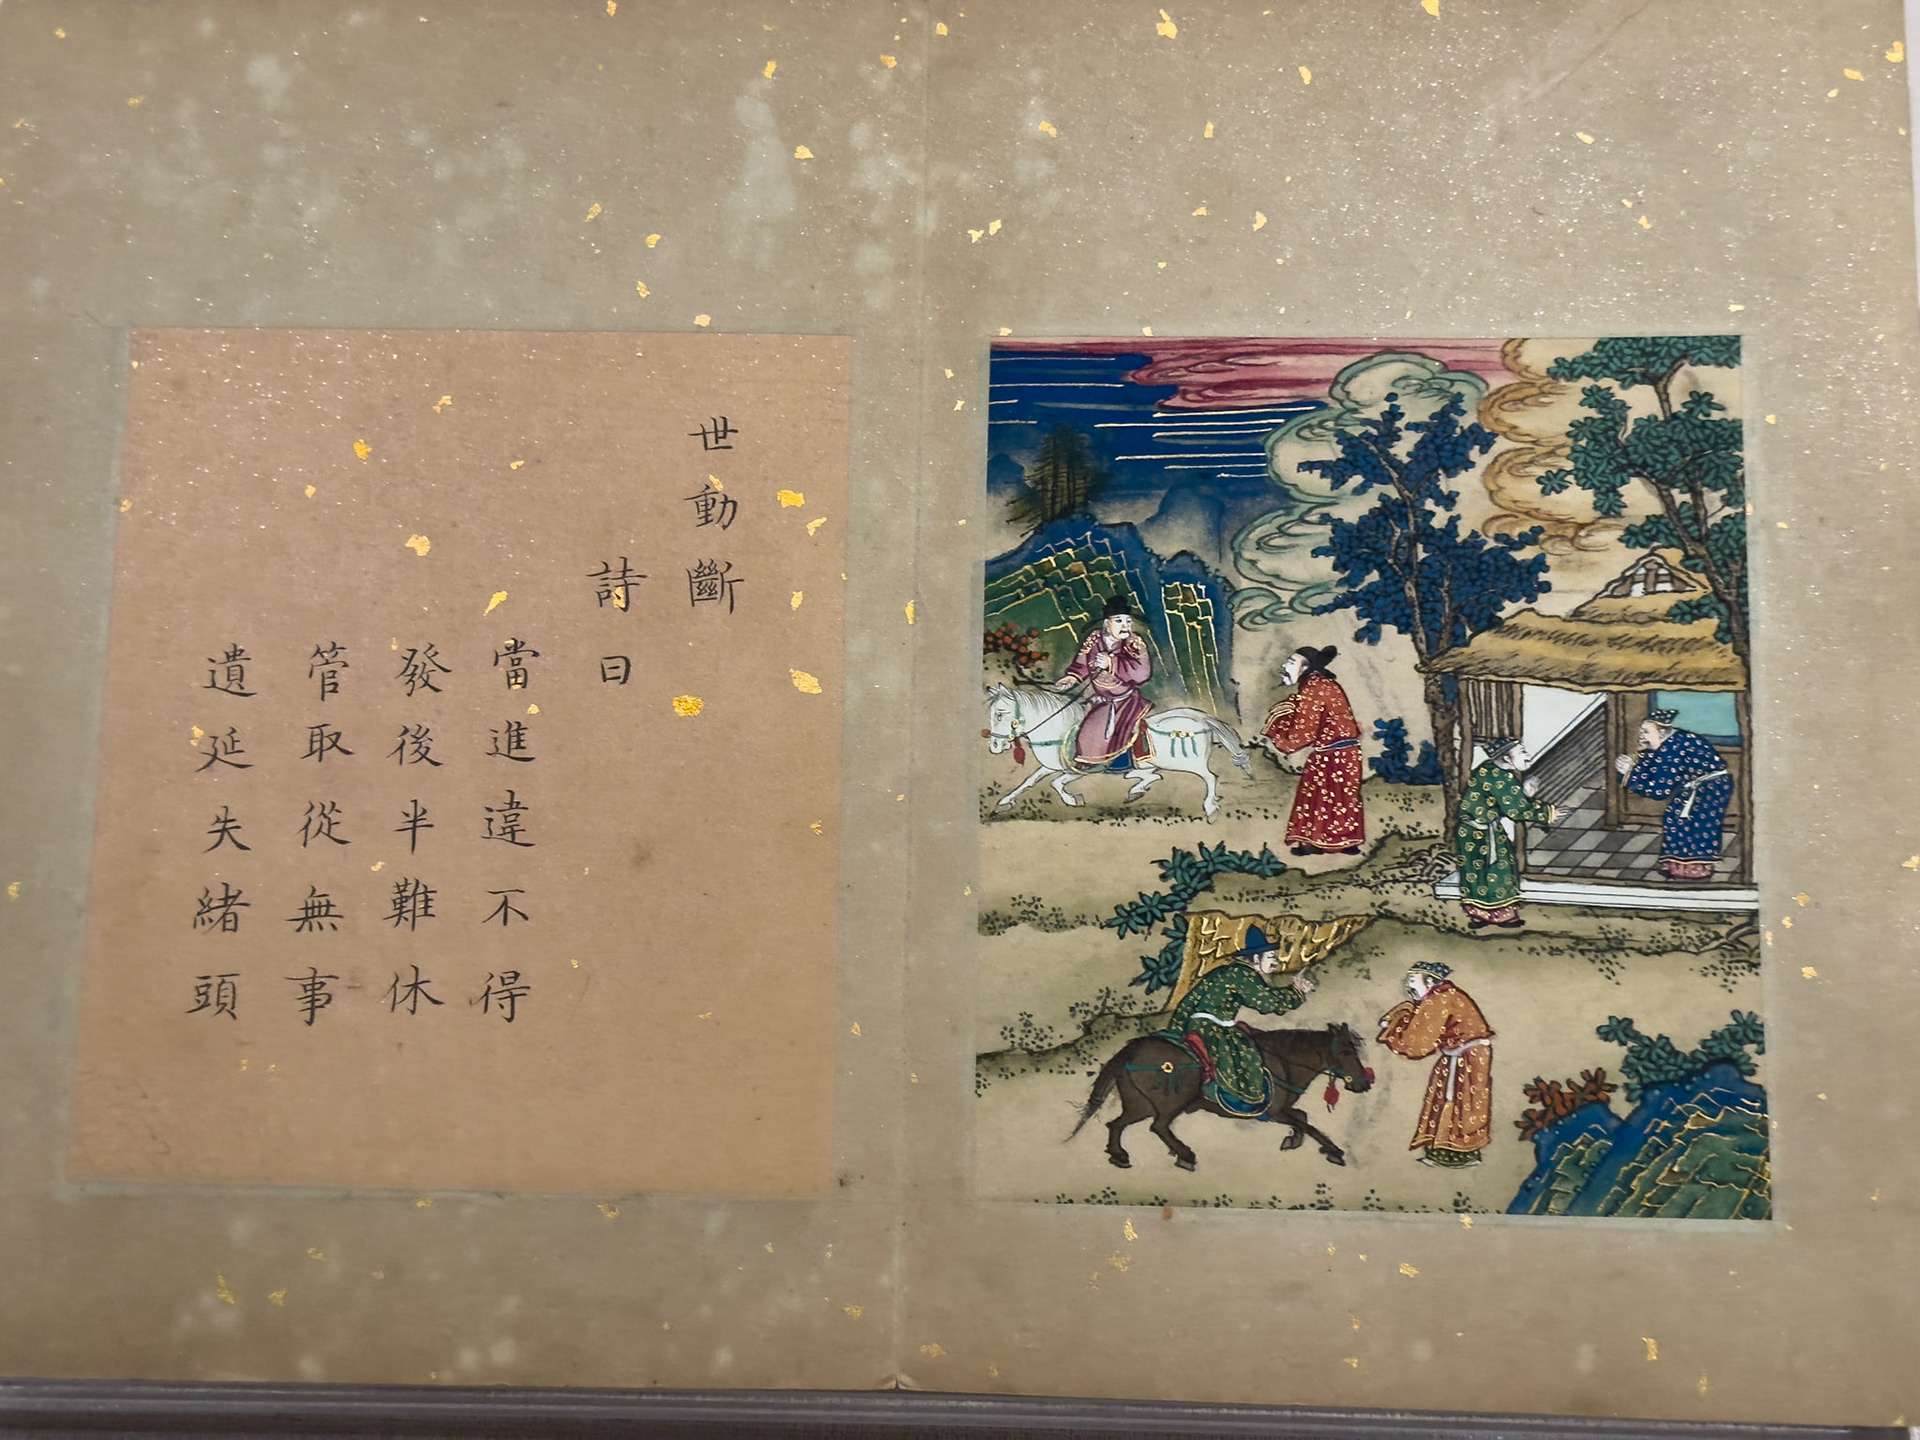 世動斷
詩曰
當進違不得
發後半難休
管取從無事
遺延失緒頭